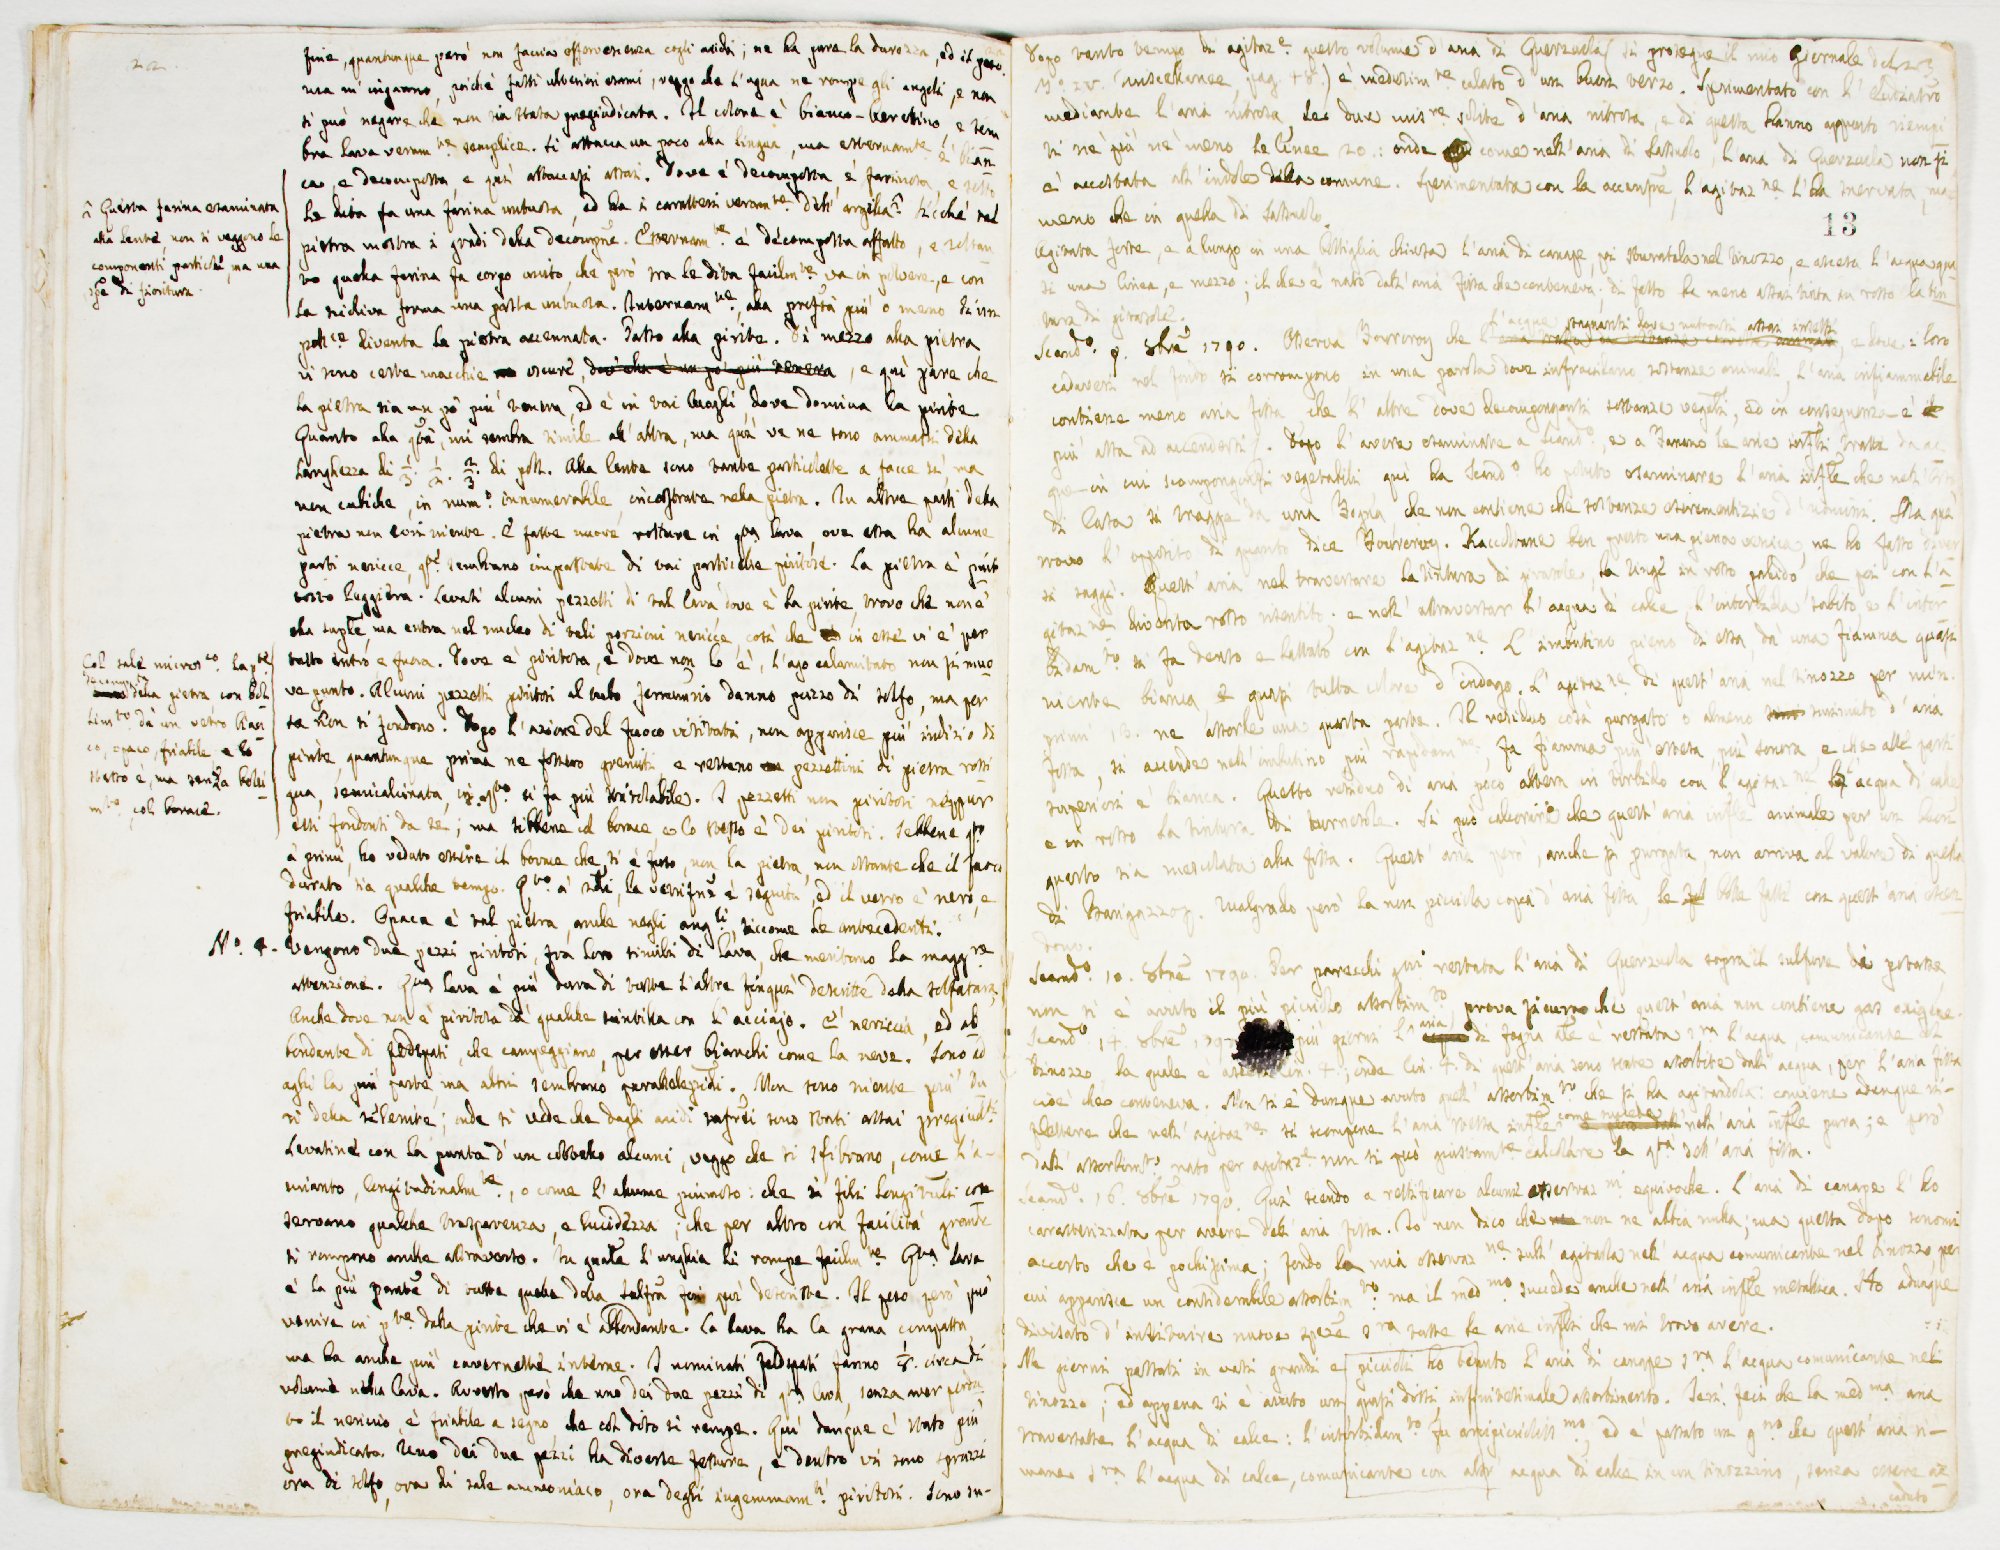 22.
fine, quantunque però non faccia effervescenza cogli acidi; ne ha pure la durezza, ed il peso.
ma m'inganno, poichè fatti ulteriori esami, veggo che l'aqua ne rompe gli angoli, e non
si può negare che non sia stata pregiudicata. Il colore è bianco-berettino, e sem
bra lava veram.te semplice. Si attacca un poco alla lingua, ma esternam.te è bian
ca, e decomposta, e quì attaccasi assai. Dove è decomposta è farinosa, e
le dita fa una farina untuosa, ed ha i caratteri veram.te dell'argilla. Sicchè tal
pietra mostra i gradi della decomp.ne. Esternam.te è decomposta affatto, e soltan
to quella farina fa corpo unito, che però tra le dita facilm.te va in polvere, e con
la saliva forma una pasta untuosa. Internam.te, alla prof.tà più o meno di un
poll.ce diventa la pietra accennata. Passo alla pirite. In mezzo alla pietra
vi sono certe macchie oscure, , e quì pare che
la pietra sia un pò più tenera, ed è in vai luoghi, dove domina la pirite
Quanto alla q.tà, mi sembra simile all'altra, ma quì ve ne sono ammassi della
larghezza di 1/3. 1/2. 2/3. di poll. Alla lente sono tante particolette a facce sì, ma
non cubiche, in num.o innumerabile, incastrate nella pietra. In altre parti della
pietra non evvi niente. È fatte nuove rotture in q.ta lava, ove essa ha alcune
parti nericce, q.te sembrano impastate di vai particelle piritose. La pietra è piut
tosto leggiera. Levati alcuni pezzetti di tal lava dove è la pirite, trovo che non è
alla sup.le, ma entra nel nucleo di tali porzioni nericce, così che in esse vi è per
tutto entro, e fuora. Dove è piritosa, e dove non lo è, l'ago calamitato non si muo
ve punto. Alcuni pezzetti piritosi al tubo ferrumin.o danno puzzo di solfo, ma per
se non si fondono. Dopo l'azione del fuoco visitati, non apparisce più indizio di
pirite, quantunque prima ne fossero gremiti e restano pezzettini di pietra rossi
gna, semicalcinata, in q.to si fa più stritolabile. I pezzetti non piritosi neppur
essi fondonsi da se; ma sibbene col borace e lo stesso è dei piritosi. Sebbene q.to
a primi, ho veduto essere il borace che si è fuso, non la pietra, non ostante che il fuoco
durato sia qualche tempo. Q.to a' , la vetrif.ne è seguita, ed il vetro è nero, e
friabile. Opaca è tal pietra, anche negli ang.li, siccome le antecedenti.
N.o 4. Vengono due pezzi piritosi, fra loro simili di lava, che meritano la magg.re
attenzione. Q.ta lava è più dura di tutte l'altre finquì descritte della solfatara
Anche dove non è piritosa dà qualche scintilla con l'acciajo. È nericcia, ed ab
bondante di feldspati, che campeggiano, per esser bianchi come la neve. Sono ad
aghi la più parte, ma altri sembrano parallelepipedi. Non sono niente più du
ri della selenite; onde si vede che dagli acidi sulfurei sono stati assai pregiud.ti
Levatine con la punta d'un coltello alcuni, veggo che si sfibrano, come l'a-
mianto, longitudinalm.te, o come l'alume piumoso: che sì fili longitud.li con
servano qualche trasparenza, e lucidezza; che per altro con facilità grande
si rompono anche attraverso. L'unghia li rompe facilm.te Q.ta lava
è la più pesante di tutte quelle della solfat.ra fin quì descritte. Il peso però può
venire in p.te dalla pirite che vi è abbondante. La lava ha la grana compatta,
ma ha anche più cavernette interne. I nominati feldspati fanno 1/8. circa di
volume nella lava. Avverto però che uno dei due pezzi di q.ta lava, senza aver perdu
to il nericcio, è friabile a segno, che col dito si rompe. Quì dunque è stato più
pregiudicato. Uno dei due pezzi ha diverse fessure, e dentro vi sono sprazzi
ora di solfo, ora di sale ammoniaco, ora degl'ingemmam.ti piritosi. Sono su-
Questa farina esaminata
alla lente non si veggono le
componenti particelle, ma una
spe di fioritura.
Col sale microsc.co la p.te
decomposta della pietra con bol
lim.to dà un vetro bian
co, opaco, friabile e lo
stesso è, ma senza bolli
m.to, col borace.
Dopo tanto tempo di agitaz.e questo volume d'aria di Querzuola (si prosegue il mio Giornale del
N.o 20. Miscellanee, pag. 48.) è medesim.te calato d'un buon terzo. Sperimentato con l'Eudiometro
mediante l'aria nitrosa, le due mis.re solite d'aria nitrosa, e di questa hanno appunto riempi
ti nè più nè meno le linee 20.: onde come nell'aria di Sassuolo, l'aria di Querzuola non si
è accostata all'indole della comune. Sperimentata con la accens.ne, l'agitaz.ne l'ha snervata, ma
meno che in quella di Sassuolo.
13
Agitata forte, e a lungo in una bottiglia chiusa l'aria di canape, poi sturatela nel tinozzo, e ascesa l'acqua qua
si una linea, e mezzo; il che è nato dall'aria fissa che conteneva; di fatto ha meno assai tinta in rosso la tin
tura di girasole.
Scand.o 9. 8bre 1790. Osserva Fourcroy che l'acque stagnanti dove nutronsi assai insetti, e dove i loro
cadaveri nel fondo si corrompono, in una parola dove infracidano sostanze animali, l'aria infiammabile
contiene meno aria fissa che l'altre dove decompongonsi sostanze vegeta.li, ed in conseguenza è
più atta ad accendersi. Dopo l'avere esaminate a Scand.o, e a Fanano le arie infi.li tratte da ac
que in cui scompongonsi vegetabili quì ha Scand.o ho potuto esaminare l'aria inf.le che nell'
di casa si tragge da una Fogna, che non contiene che sostanze escrementizie d'uomini. Ma quì
trovo l'opposito di quanto dice Fourcroy. Raccoltane ben presto una piena vescica, ne ho fatto diver
si saggi. Quest'aria nel traversare la tintura di girasole, la tinge in rosso pallido, che poi con l'a
gitaz.ne diventa rosso risentito. e nell'attraversar l'acqua di calce l'intorbida subito e l'intor
bidam.to si fa denso e lattato con l'agitaz.ne L'imbutino pieno di essa, dà una fiamma quasi
niente bianca, e quasi tutta colore d'indago. L'agitaz.ne di quest'aria nel tinozzo per min.
primi 13. ne assorbe una quarta parte. Il residuo così purgato o almeno sminuito d'aria
fissa, si accende nell'imbutino più rapidam.te, fa fiamma più estesa, più sonora, e che alle parti
superiori è bianca. Questo residuo di aria poco altera in torbido con l'agitaz.ne l'acqua di calce
e in rosso la tintura di tornesole. Si può calcolare che quest'aria inf.le animale per un buon
quarto sia mescolata alla fissa. Quest'aria però, anche sì purgata, non arriva al valore di quella
di Barigazzo. Malgrado però la non piccola copia d'aria fissa, le bolle fatte con quest'aria ascen
dono.
Scand.o 10. 8bre 1790. Per parecchi giorni restata l'aria di Querzuola sopra il sulfure di potassa,
non si è avuto il più picciolo assorbim.to, prova sicura che quest'aria non contiene gas ossigene.
Scand.o 14. 8bre 179 più giorni l'aria di Fogna inf.le è restata s.ra l'acqua comunicante col
tinozzo la quale è ascesa lin. 4.; onde lin. 4. di quest'aria sono state assorbite dall'acqua, per l'aria fissa
cioè che conteneva. Non si è dunque avuto quell'assorbim.to che si ha agitandola: conviene adunque ri-
flettere che nell'agitaz.ne si scompone l'aria stessa inf.le come succede nell'aria inf.le pura; e però
dall'assorbim.to nato per agitaz.e non si può giustam.te calcolare la q.tà dell'aria fissa.
Scand.o 16. 8bre 1790. Quì scendo a rettificare alcune osservaz.ni equivoche. L'aria di canape l'ho
caratterizzata per avere dell'aria fissa. Io non dico che non ne abbia nulla; ma questa dopo sonomi
accorto che è pochissima; fondo la mia osservaz.ne sull'agitarla nell'acqua comunicante nel tinozzo per
cui apparisce un considerabile assorbim.to: ma il med.mo succede anche nell'aria inf.le metallica. Ho adunque
divisato d'instituire nuove sper.ze s.ra tutte le arie inf.li che mi trovo avere.
Ne giorni passati in vasi grandi e piccioli ho tenuto l'aria di canape s.ra l'acqua comunicante nel
tinozzo; ed appena si è avuto un quasi dissi infinitesimale assorbimento. Jeri feci che la med.ma aria
traversasse l'acqua di calce: l'intorbidam.to fu piccioliss.mo, ed è passato un g.no che quest'aria ri-
mane s.ra l'acqua di calce, comunicante con altr'acqua di calce in un tinozzino, senza essere ac
caduto